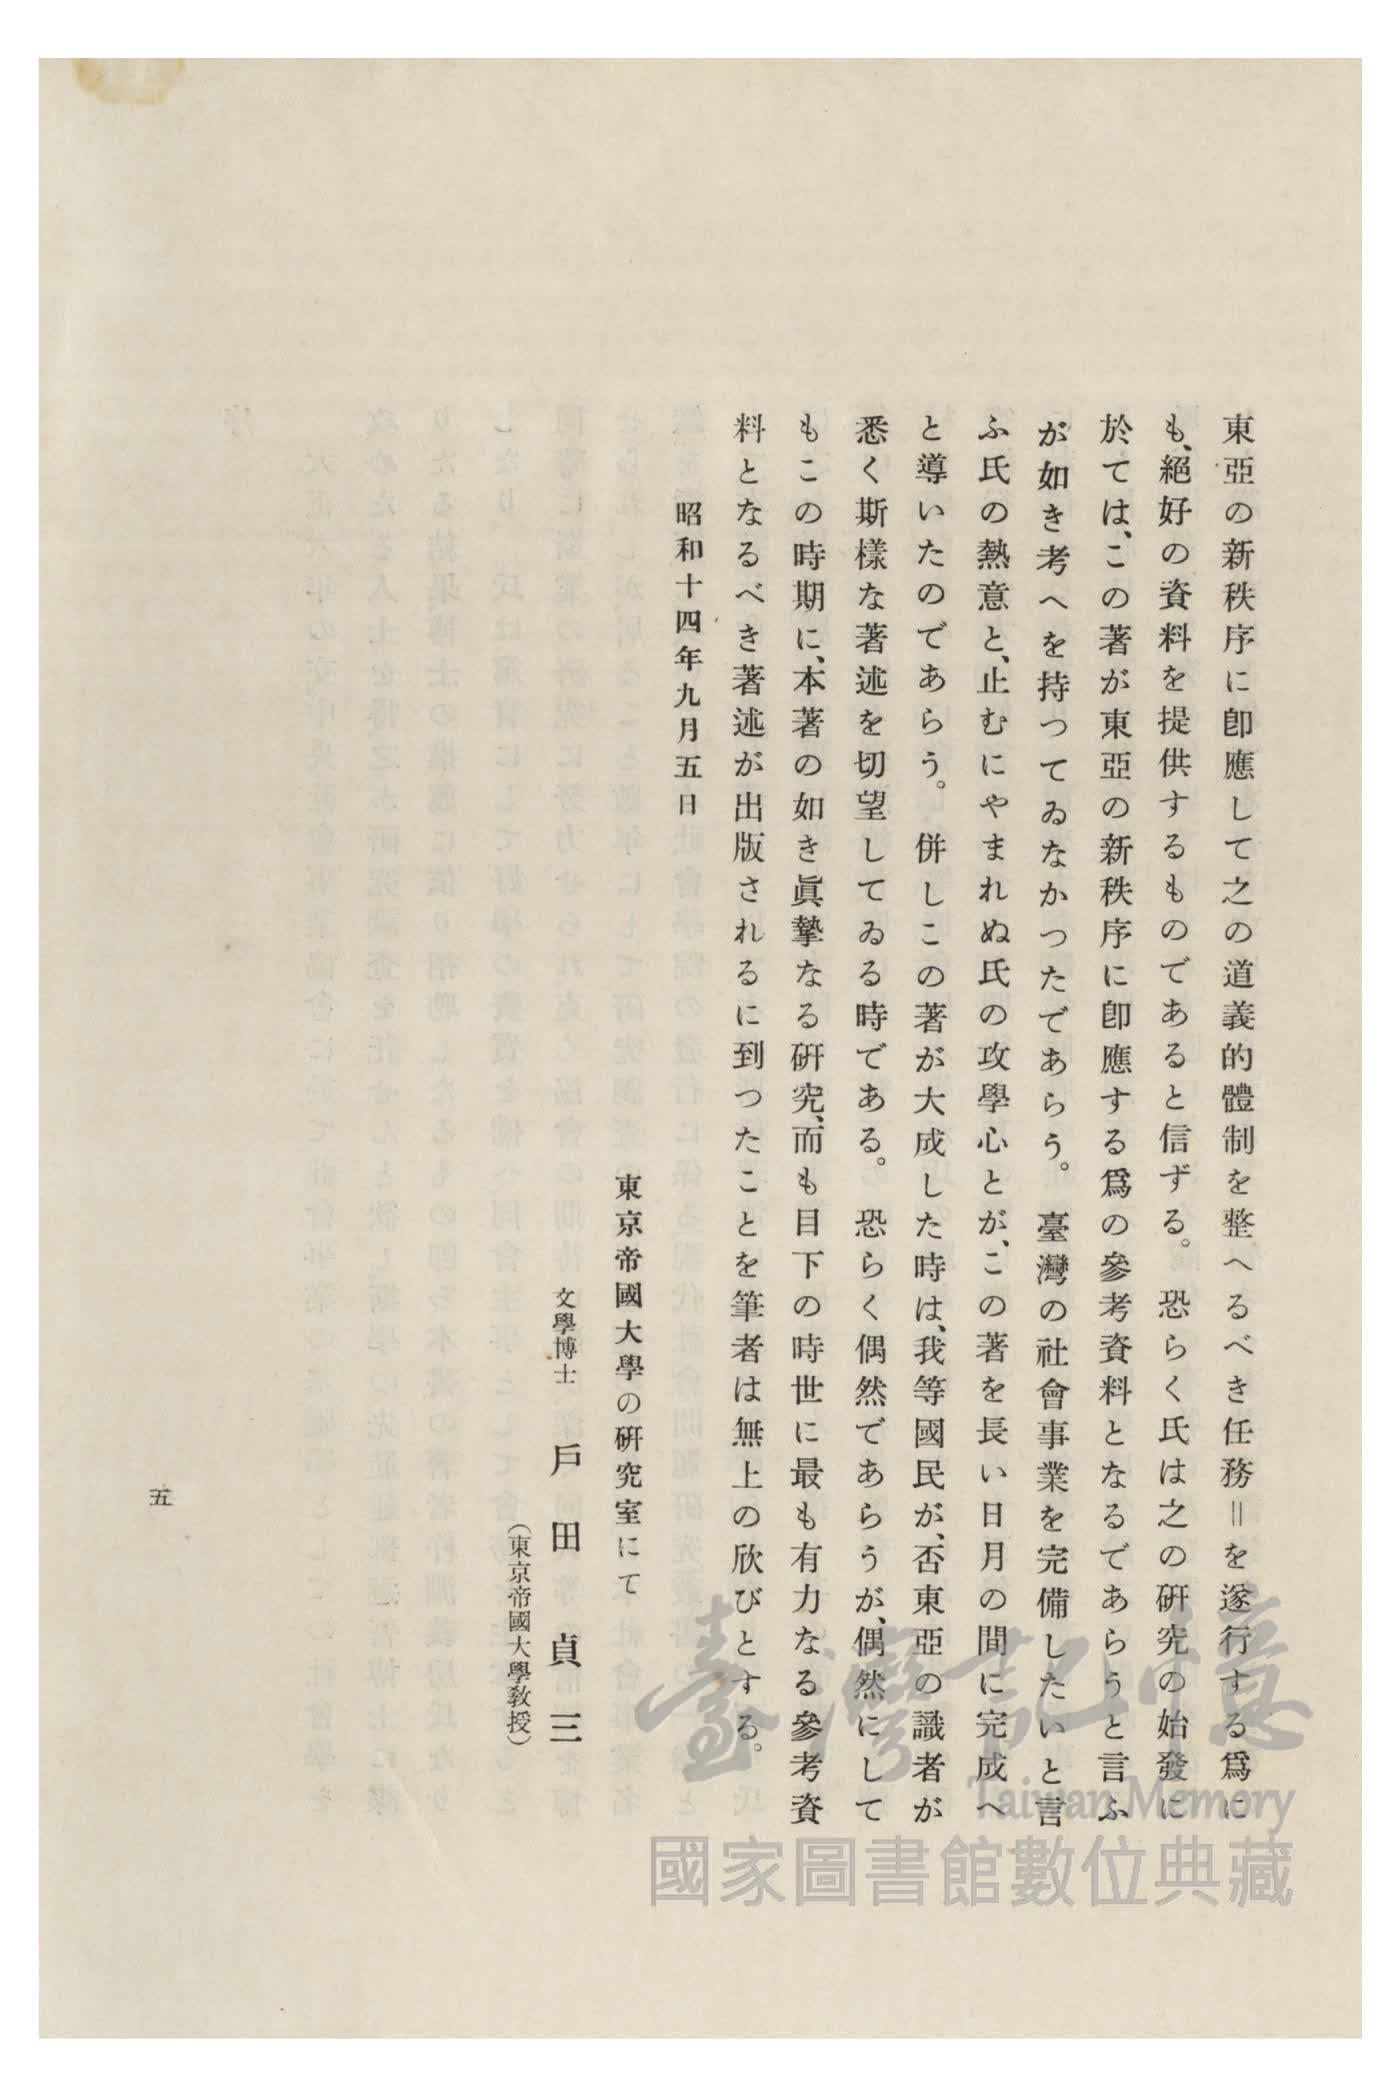 東亞の新秩序に卽應して之の道義的體制を整へるべき任務＝を遂行する爲に
も、絕好の資料を提供するものであると信ずる。恐らく氏は之の硏究の始發に
於ては、この著が東亞の新秩序に卽應する爲の參考資料となるであらうと言ふ
が如き考へを持つてゐなかつたであらう。臺灣の社會事業を完備したいと言
ふ氏の熱意と、止むにやまれぬ氏の攻學心とが、この著を長い日月の間に完成へ
と導いたのであらう。併しこの著が大成した時は、我等國民が、否東亞の識者が
悉く斯樣な著述を切望してゐる時である。恐らく偶然であらうが、偶然にして
もこの時期に、本著の如き眞摯なる硏究、而も目下の時世に最も有力なる參考資
料となるべき著述が出版されるに到つたことを筆者は無上の欣びとする。
昭和十四年九月五日
東京帝國大學の硏究室にて
文學博士 戶田貞三
（東京帝國大學敎授）
五
臺灣記憶
Taiwan Memory
國家圖書館數位典藏